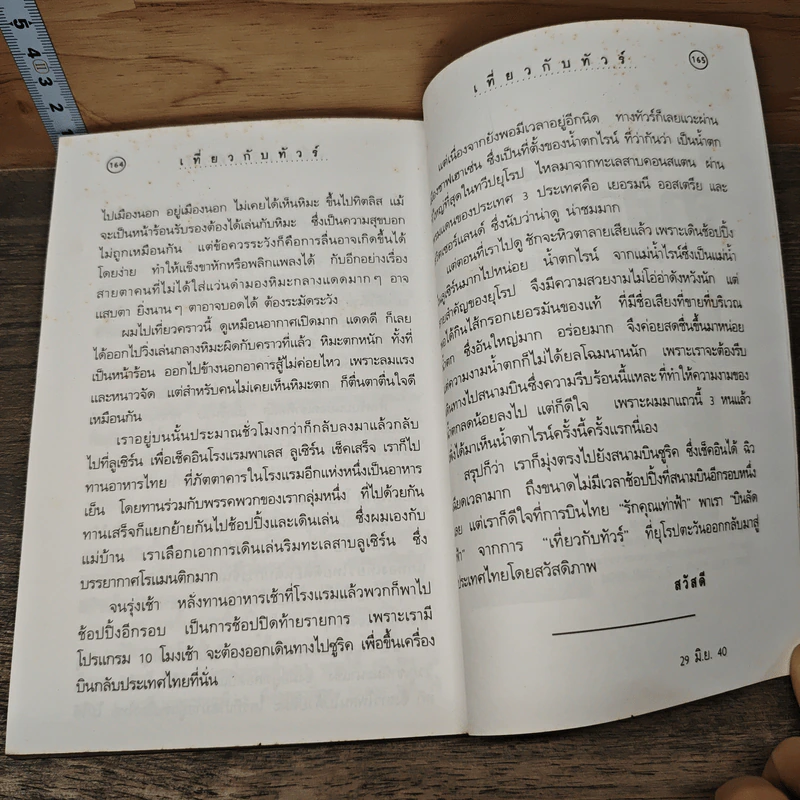 5
4
3
2
1
164
เที่ยวกับทัวร์
ไปเมืองนอก อยู่เมืองนอก ไม่เคยได้เห็นหิมะ ขึ้นไปทิตลิส แม้
จะเป็นหน้าร้อนรับรองต้องได้เล่นกับหิมะ ซึ่งเป็นความสุขบอก
ไม่ถูกเหมือนกัน แต่ข้อควรระวังก็คือการลื่นอาจเกิดขึ้นได้
โดยง่าย ทำให้แข็งขาหักหรือพลิกแพลงได้ กับอีกอย่างเรื่อง
สายตาคนที่ไม่ได้ใส่แว่นดำมองหิมะกลางแดดมากๆ อาจ
แสบตา ยิ่งนานๆ ตาอาจบอดได้ ต้องระมัดระวัง
ผมไปเที่ยวคราวนี้ ดูเหมือนอากาศเปิดมาก แดดดี ก็เลย
ได้ออกไปวิ่งเล่นกลางหิมะผิดกับคราวที่แล้ว หิมะตกหนัก ทั้งที่
เป็นหน้าร้อน ออกไปข้างนอกอาคารสู้ไม่ค่อยไหว เพราะลมแรง
และหนาวจัด แต่สำหรับคนไม่เคยเห็นหิมะตก ก็ตื่นตาตื่นใจดี
เหมือนกัน
เราอยู่บนนั้นประมาณชั่วโมงกว่าก็กลับลงมาแล้วกลับ
ไปที่ลูเซิร์น เพื่อเช็คอินโรงแรมพาเลส ลูเซิร์น เช็คเสร็จ เราก็ไป
ทานอาหารไทย ที่ภัตตาคารในโรงแรมอีกแห่งหนึ่งเป็นอาหาร
เย็น โดยทานร่วมกับพรรคพวกของเรากลุ่มหนึ่ง ที่ไปด้วยกัน
ทานเสร็จก็แยกย้ายกันไปช้อปปิ้งและเดินเล่น ซึ่งผมเองกับ
แม่บ้าน เราเลือกเอาการเดินเล่นริมทะเลสาบลูเซิร์น ซึ่ง
บรรยากาศโรแมนติกมาก
จนรุ่งเช้า หลังทานอาหารเช้าที่โรงแรมแล้วพวกก็พาไป
ช้อปปิ้งอีกรอบ เป็นการช้อปปิดท้ายรายการ เพราะเรามี
โปรแกรม 10 โมงเช้า จะต้องออกเดินทางไปซูริค เพื่อขึ้นเครื่อง
บินกลับประเทศไทยที่นั่น
เที่ยวกับทัวร์
165
แต่เนื่องจากยังพอมีเวลาอยู่อีกนิด ทางทัวร์ก็เลยแวะผ่าน
ชาฟเฮาเซ่น ซึ่งเป็นที่ตั้งของน้ำตกไรน์ ที่ว่ากันว่า เป็นน้ำตก
ใหญ่ที่สุดในทวีปยุโรป ไหลมาจากทะเลสาบคอนสแตน ผ่าน
แดนของประเทศ 3 ประเทศคือ เยอรมนี ออสเตรีย และ
เซอร์แลนด์ ซึ่งนับว่าน่าดู น่าชมมาก
แต่ตอนที่เราไปดู ชักจะหิวตาลายเสียแล้ว เพราะเดินช้อปปิ้ง
ลูเซิร์นมากไปหน่อย น้ำตกไรน์ จากแม่น้ำไรน์ซึ่งเป็นแม่น้ำ
สำคัญของยุโรป จึงมีความสวยงามไม่โอ่อ่าดังหวังนัก แต่
ได้กินไส้กรอกเยอรมันของแท้ ที่มีชื่อเสียงที่ขายที่บริเวณ
ตก ซึ่งอันใหญ่มาก อร่อยมาก จึงค่อยสดชื่นขึ้นมาหน่อย
ความงามน้ำตกก็ไม่ได้ยลโฉมนานนัก เพราะเราจะต้องรีบ
เดินทางไปสนามบินซึ่งความรีบร้อนนี้แหละ ที่ทำให้ความงามของ
น้ำตกลดน้อยลงไป แต่ก็ดีใจ เพราะผมมาแถวนี้ 3 หนแล้ว
ได้มาเห็นน้ำตกไรน์ครั้งนี้ครั้งแรกนี่เอง
สรุปก็ว่า เราก็มุ่งตรงไปยังสนามบินซูริค ซึ่งเช็คอินได้ ฉิว
เฉียดเวลามาก ถึงขนาดไม่มีเวลาช้อปปิ้งที่สนามบินอีกรอบหนึ่ง
เลย แต่เราก็ดีใจที่การบินไทย "รักคุณเท่าฟ้า" พาเรา "บินลัด
ฟ้า" จากการ "เที่ยวกับทัวร์" ที่ยุโรปตะวันออกกลับมาสู่
ประเทศไทยโดยสวัสดิภาพ
สวัสดี
29 มิ.ย. 40